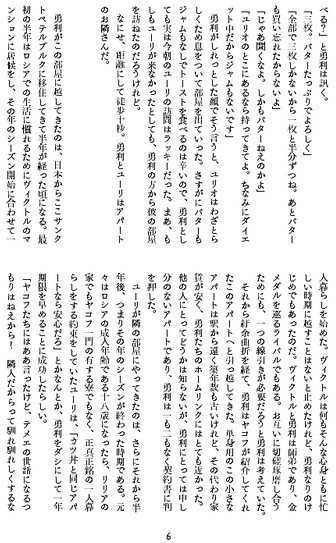 べる？」と勇利は訊く。
「三枚。バターたっぷりでよろしく」
「全部で三枚しかないから一枚と半分ずつね。あとバター
も買い忘れたからないよ」
「じゃあ聞くなよ。しかもバターねえのかよ」
「ユーリのとこにあるなら持ってきてよ。ちなみにダイエ
ット中だからジャムもないです」
勇利がしれっとした顔でそう言うと、ユーリはわざとら
しくため息をついて部屋を出ていった。さすがにバターも
ジャムもなしでトーストを食べるのは辛いので、勇利とし
ても実は今朝のユーリの訪問はラッキーだった。まあ、も
しもユーリが来なかったとしても、勇利の方から彼の部屋
を訪ねたのだろうけれど。
なにせ、距離にして徒歩十秒。勇利とユーリはアパート
のお隣さんだ。
勇利がこの部屋に越してきたのは、日本からここサンク
トペテルブルクに移住してきて半年が経った頃になる。最
初の半年はロシアでの生活に慣れるためにヴィクトルのマ
ンションに居候をし、その年のシーズン開始に合わせて一
人暮らしを始めた。ヴィクトルは何もそんな心身ともに忙
しい時期に越すことはないと止めたけれど、勇利なりのけ
じめでもあったのだ。ヴィクトルと勇利は師弟であり、金
メダルを巡るライバルでもある。お互いに切磋琢磨し合う
ためにも、一つの線引きが必要だろうと勇利は考えていた。
それから紆余曲折を経て、勇利はヤコフが紹介してくれ
たこのアパートへと引っ越してきた。単身用のこの小さな
アパートは駅から遠く築年数も古いけれど、その代わり家
賃が安く、勇利たちのホームリンクにはとても近かった。
他の人にとってどうかは知らないが、勇利にとっては申し
分のないアパートであり、勇利は一も二もなく契約書に判
を押した。
ユーリが隣の部屋にやってきたのは、さらにそれから半
年後、つまりその年のシーズンが終わった時期である。元
々はロシアの成人年齢である十八歳になったら、リリアの
家でもヤコフ一門の有する寮でもなく、正真正銘の一人暮
らしをする約束をしていたユーリは、「カツ丼と同じアパ
ートなら安心だろ」とかなんとか、勇利をダシにして一年
期限を早めることに成功したらしい。
「ヤコフたちにはああ言ったけど、テメエの世話になるつ
もりはねえから！　隣人だからって馴れ馴れしくするな
6